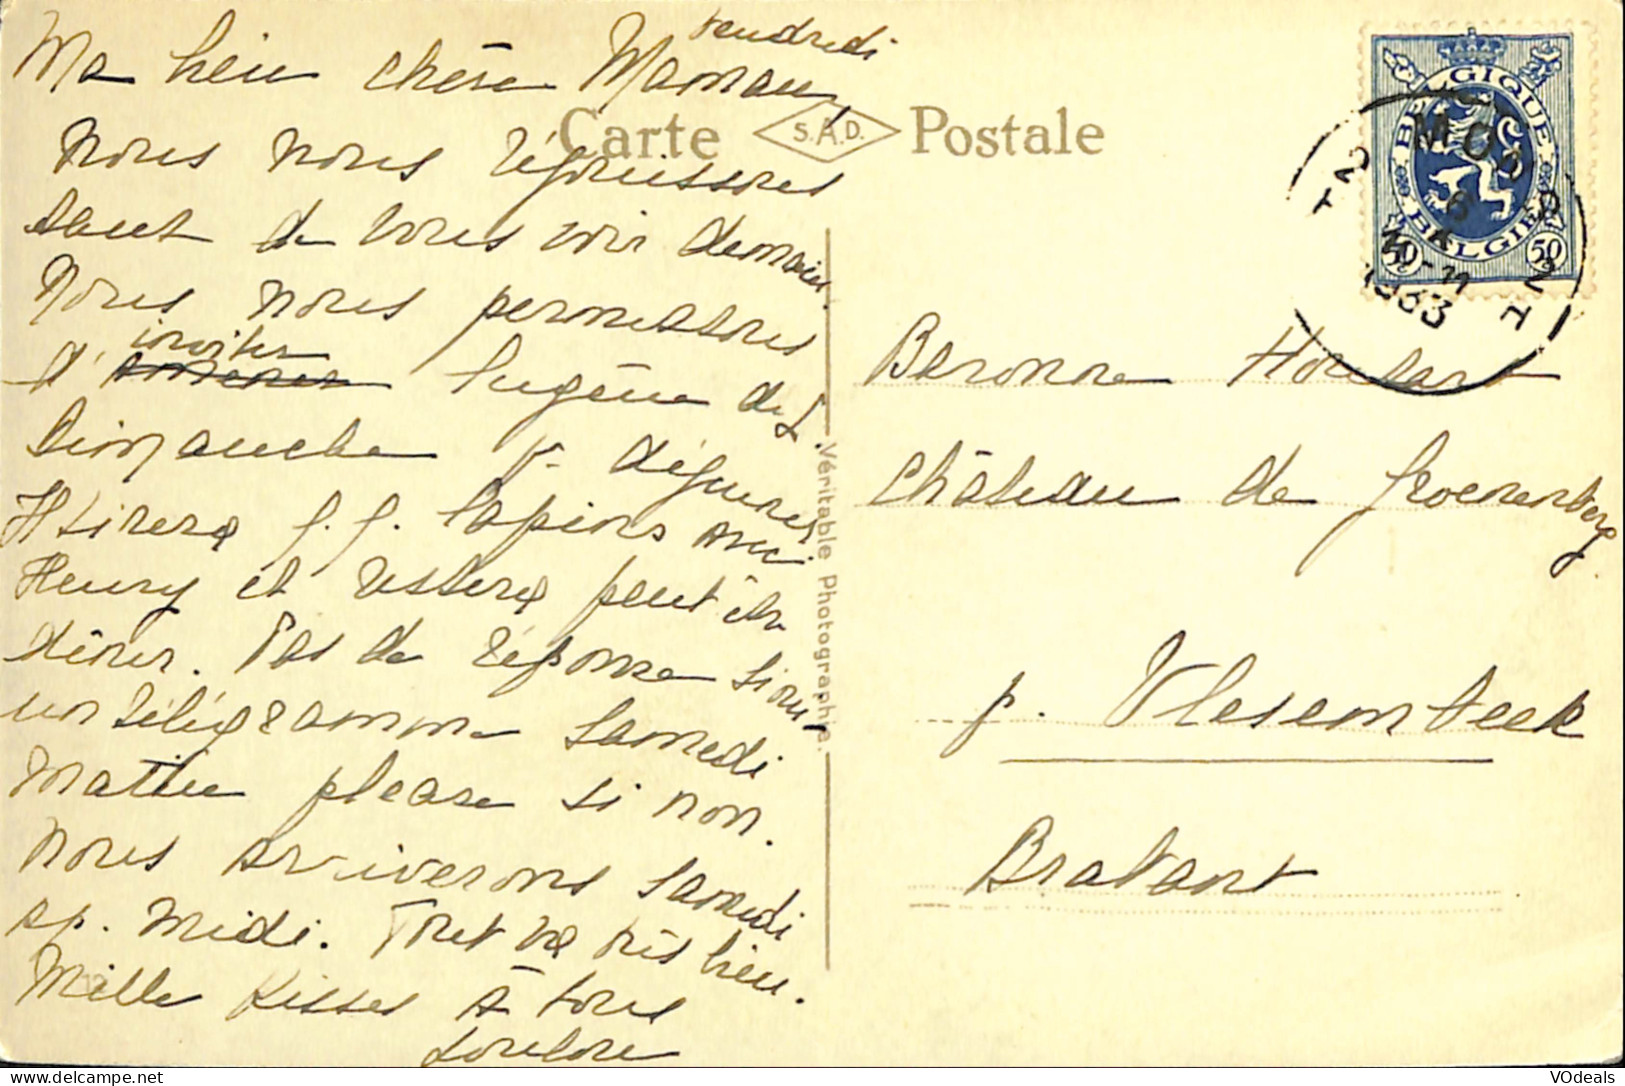 vendredi
Ma bien chère Maman,
Carte S.A.D. Postale
Nous nous réjouissons
tant de vous voir demain
Nous nous permettons
inviter
d' amener Eugène de L
Dimanche p. déjeuner
Il tirera q.q. lapins avec
Henry et restera peut être
dîner. Pas de réponse sinon
un télégramme Samedi
matin please si non.
Nous arriverons Samedi
ap. Midi. Tout va très bien.
Mille Kisses à tous
Loulou
Véritable Photographie.
BELGIQUE
BELGIË
50 50
MO
2 2
6
10-11
1933
H
Baronne Houtart
Château de Groenenberg
p. Vlesembeek
Brabant
VOdeals